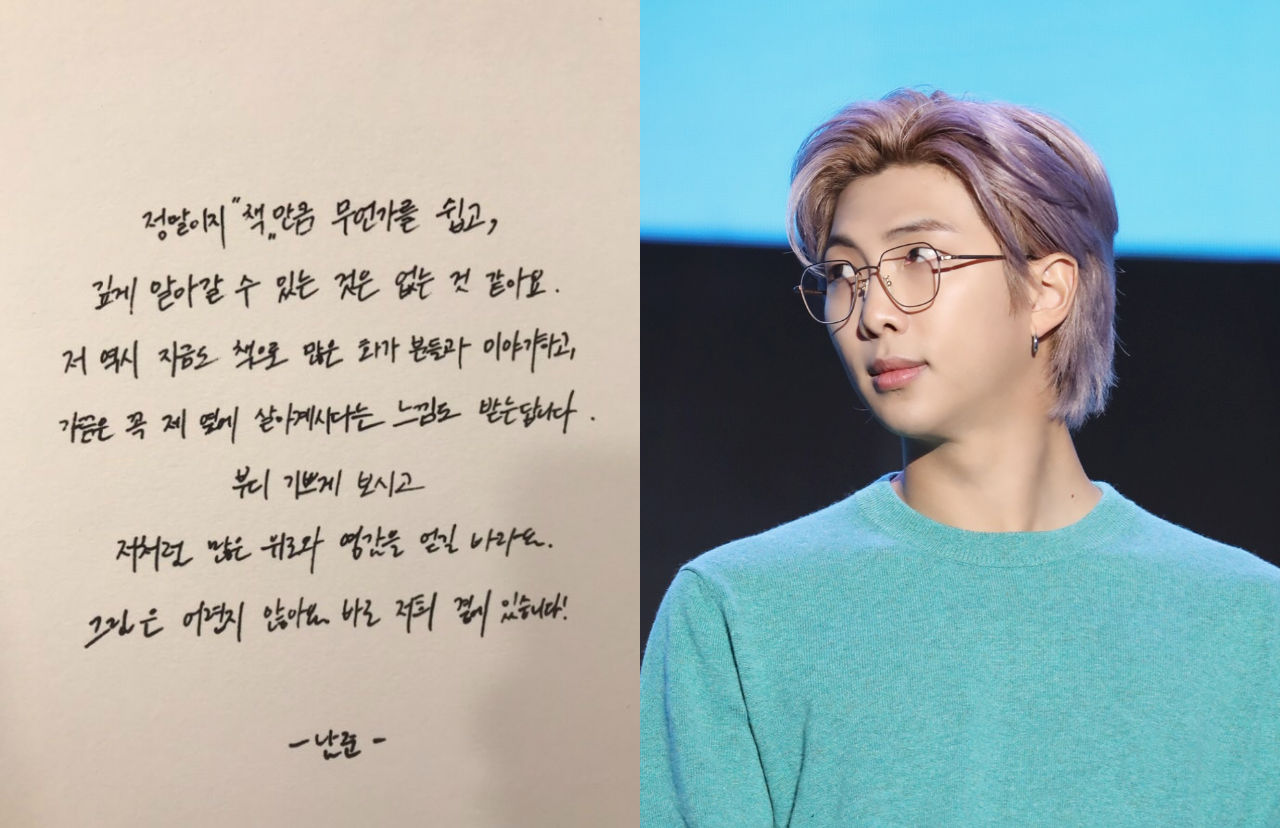 정말이지 "책"만큼 무언가를 쉽고,
깊게 알아갈 수 있는 것은 없는 것 같아요.
저 역시 지금도 책으로 많은 화가 분들과 이야기하고,
가끔은 꼭 제 옆에 살아계시다는 느낌도 받는답니다.
부디 기쁘게 보시고
저처럼 많은 위로와 영감을 얻길 바라요.
그림은 어렵지 않아요. 바로 저희 곁에 있습니다!
- 남준 -